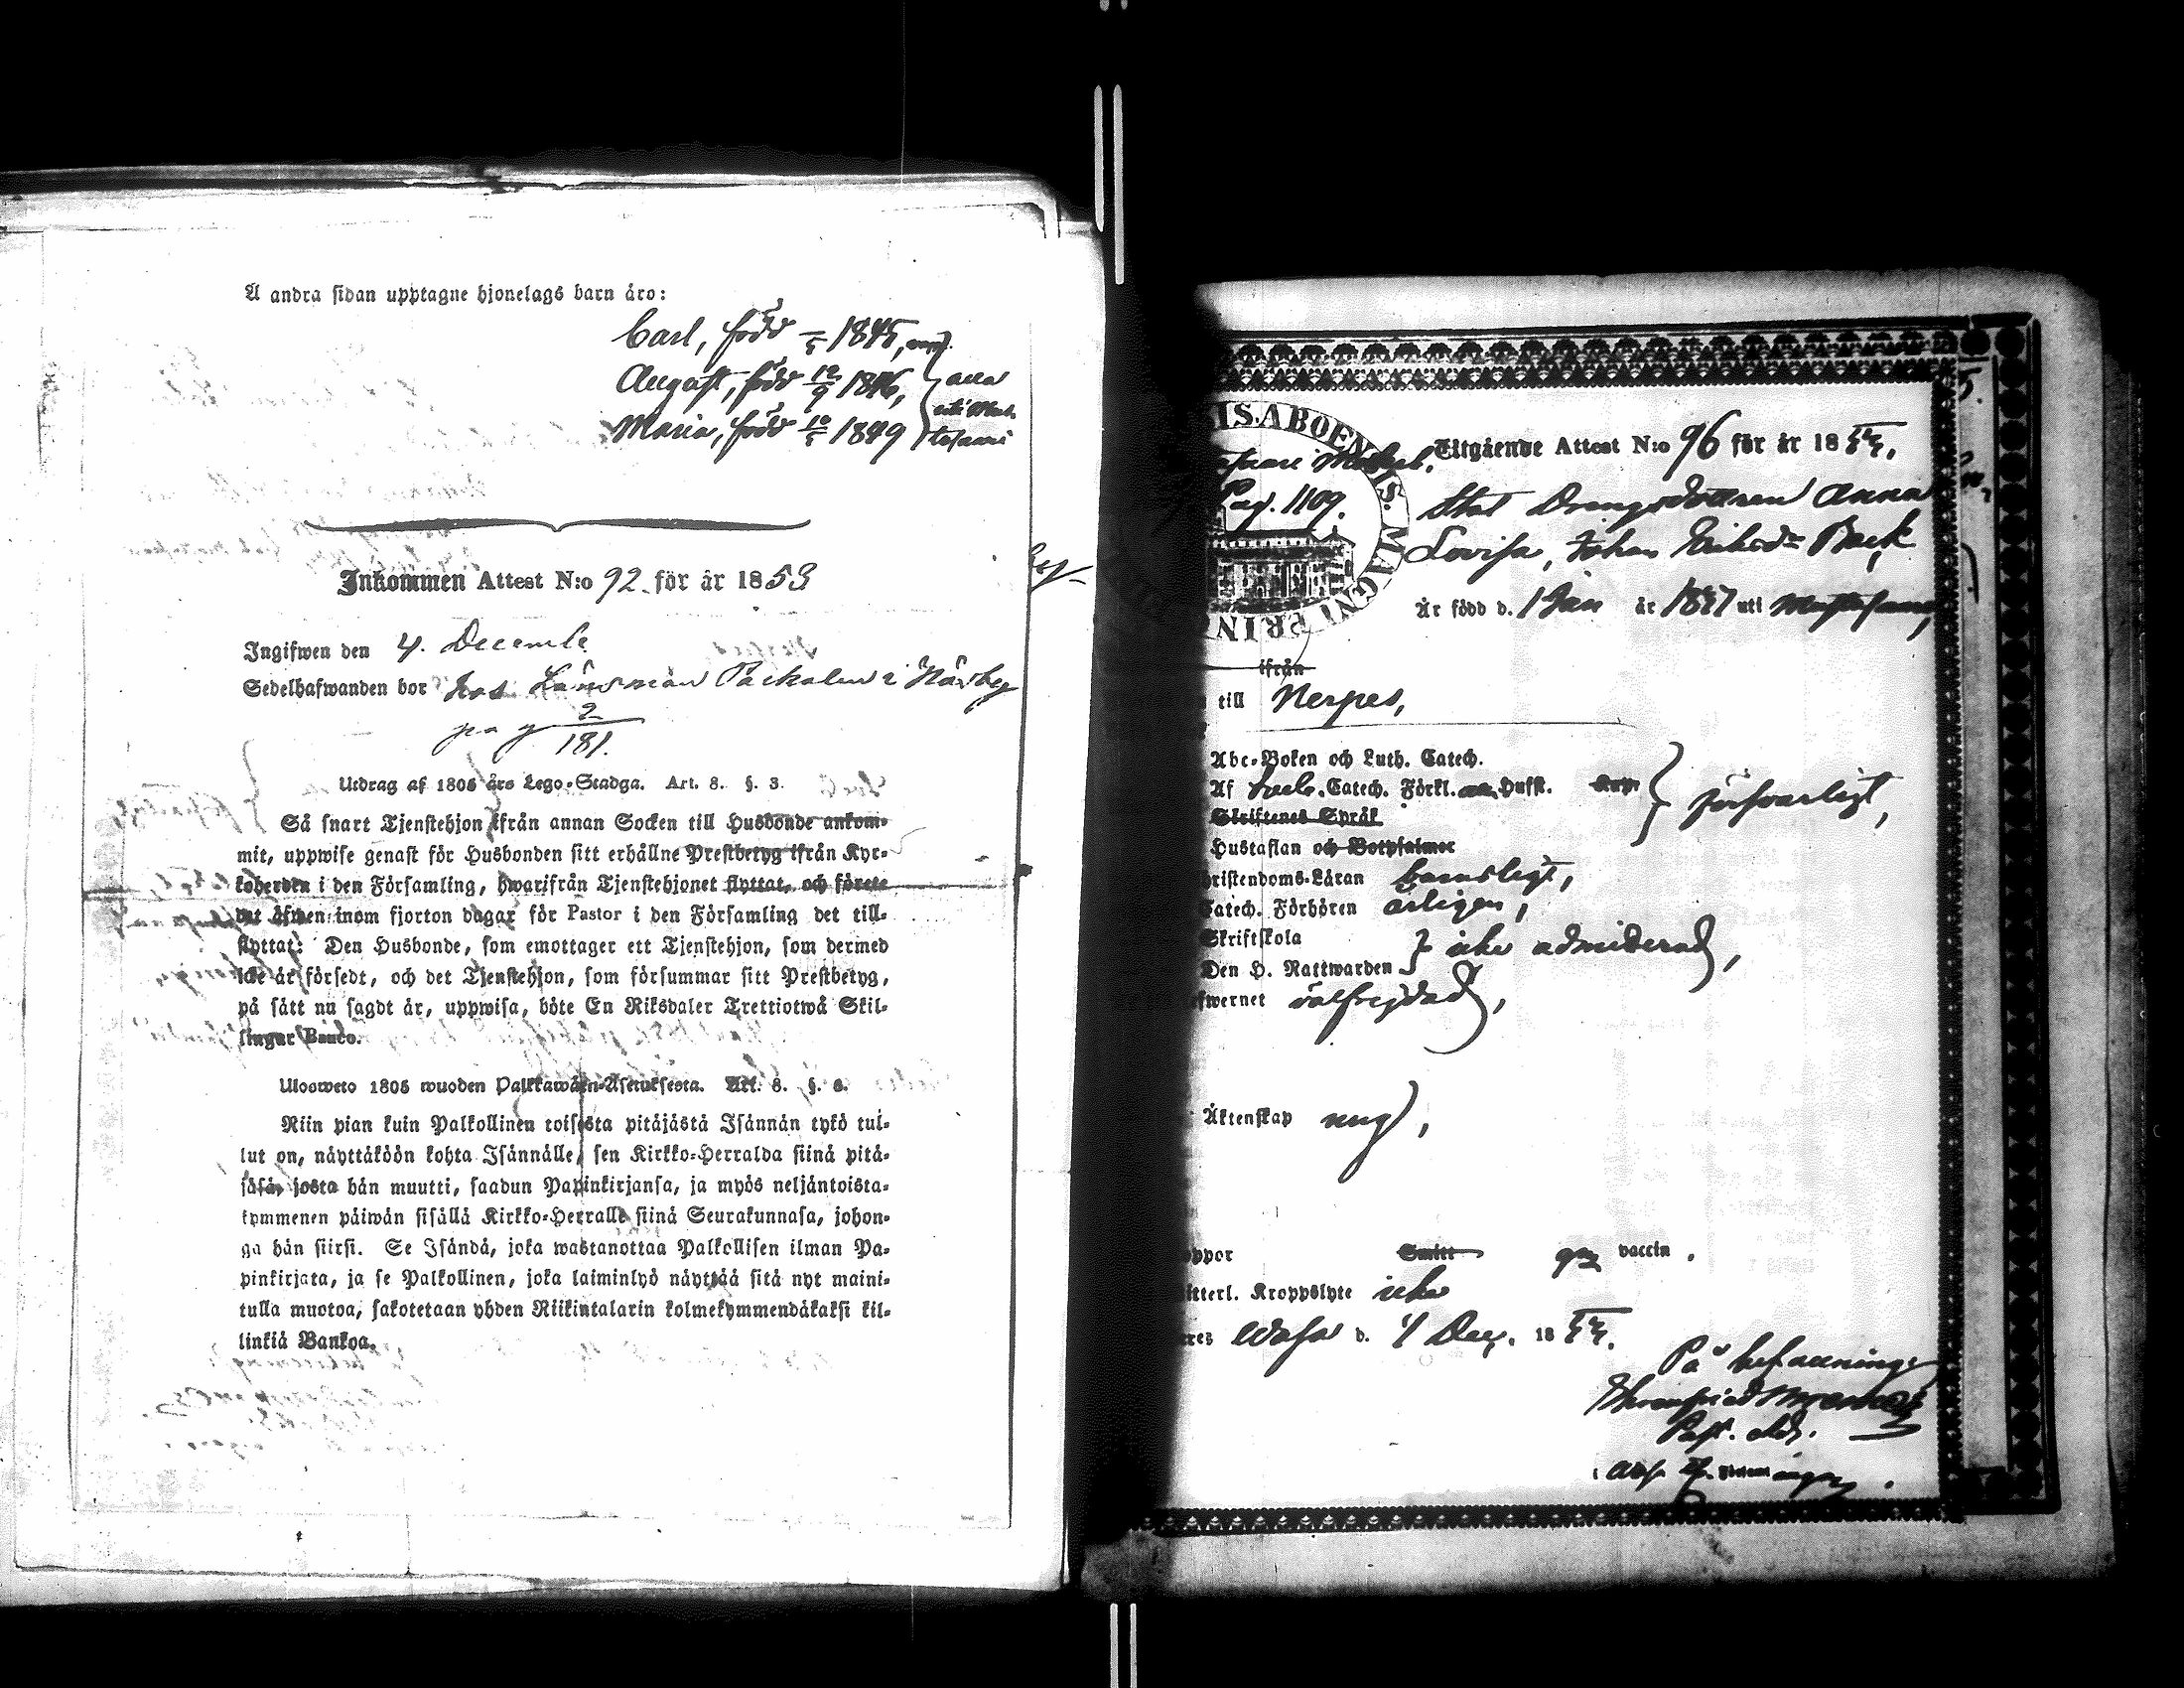 Å andra sidan upptagne hjonelags barn äro:
Carl, född 1845,
August, född 12/9 1846,
Maria, född 10/5 1849
Inkommen Attest N:o 92. för år 1853
Ingifwen den 4. Decembe
Sedelhafwanden bor hos Länsman i Närby
pag 2/181.
Utdrag af 1805 års Lego-Stadga. Art. 8. §. 3.
Så snart Tjenstehjon ifrån annan Socken till Husbonde ankom-
mit, uppwise genast för Husbonden sitt erhållne Prestbetyg ifrån Kyr-
koherden i den Församling, hwarifrån Tjenstehjonet flyttat, och förete
det äfwen inom fjorton dagar för Pastor i den Församling det till-
flyttat: Den Husbonde, som emottager ett Tjenstehjon, som dermed
icke är försedt, och det Tjenstehjon, som försummar sitt Prestbetyg,
på sätt nu sagdt är, uppwisa, böte En Riksdaler Trettiotwå Skil-
lingar Banco.
Ulosweto 1805 wuoden Palkkawäen-Asetuksesta. Art. 8. §. 3.
Niin pian kuin Palkollinen toisesta pitäjästä Isännän tykö tul-
lut on, näyttäköön kohta Isännälle, sen Kirkko-Herralda siinä pitä-
jäsä, josta hän muutti, saadun Papinkirjansa, ja myös neljäntoista-
kymmenen päiwän sisällä Kirkko-Herralle siinä Seurakunnasa, johon-
ga hän siirsi. Se Isändä, joka wastanottaa Palkollisen ilman Pa-
pinkirjata, ja se Palkollinen, joka laiminlyö näyttää sitä nyt maini-
tulla muotoa, sakotetaan yhden Riikintalarin kolmekymmendäkaksi kil-
linkiä Bankoa.
IS. ABOENSIS. MAGNI PRIN
Pag. 1109.
Utgående Attest N:o 96 för år 18
Stat Drengsdottren Anna
Lovisa, Johan Eriksd:r Back
är född d. 1 Jan år uti
ifrån
till Nerpes,
Abc-Boken och Luth. Catech.
Af Catech. Förkl. Husst.
Skriftenes Språk
Hustaflan och Botpsalmer
försvarligt,
hristendoms-Läran barnsligt,
Catech. Förhören årligen,
Skriftskola
Den H. Nattwarden
icke admitterad,
fwernet välfrejdad,
Äktenskap
oppor Smitt vaccin.
itterl. Kroppslyte icke
res Wasa d. 4 Dec. 18
På befallning
Past. Adj.